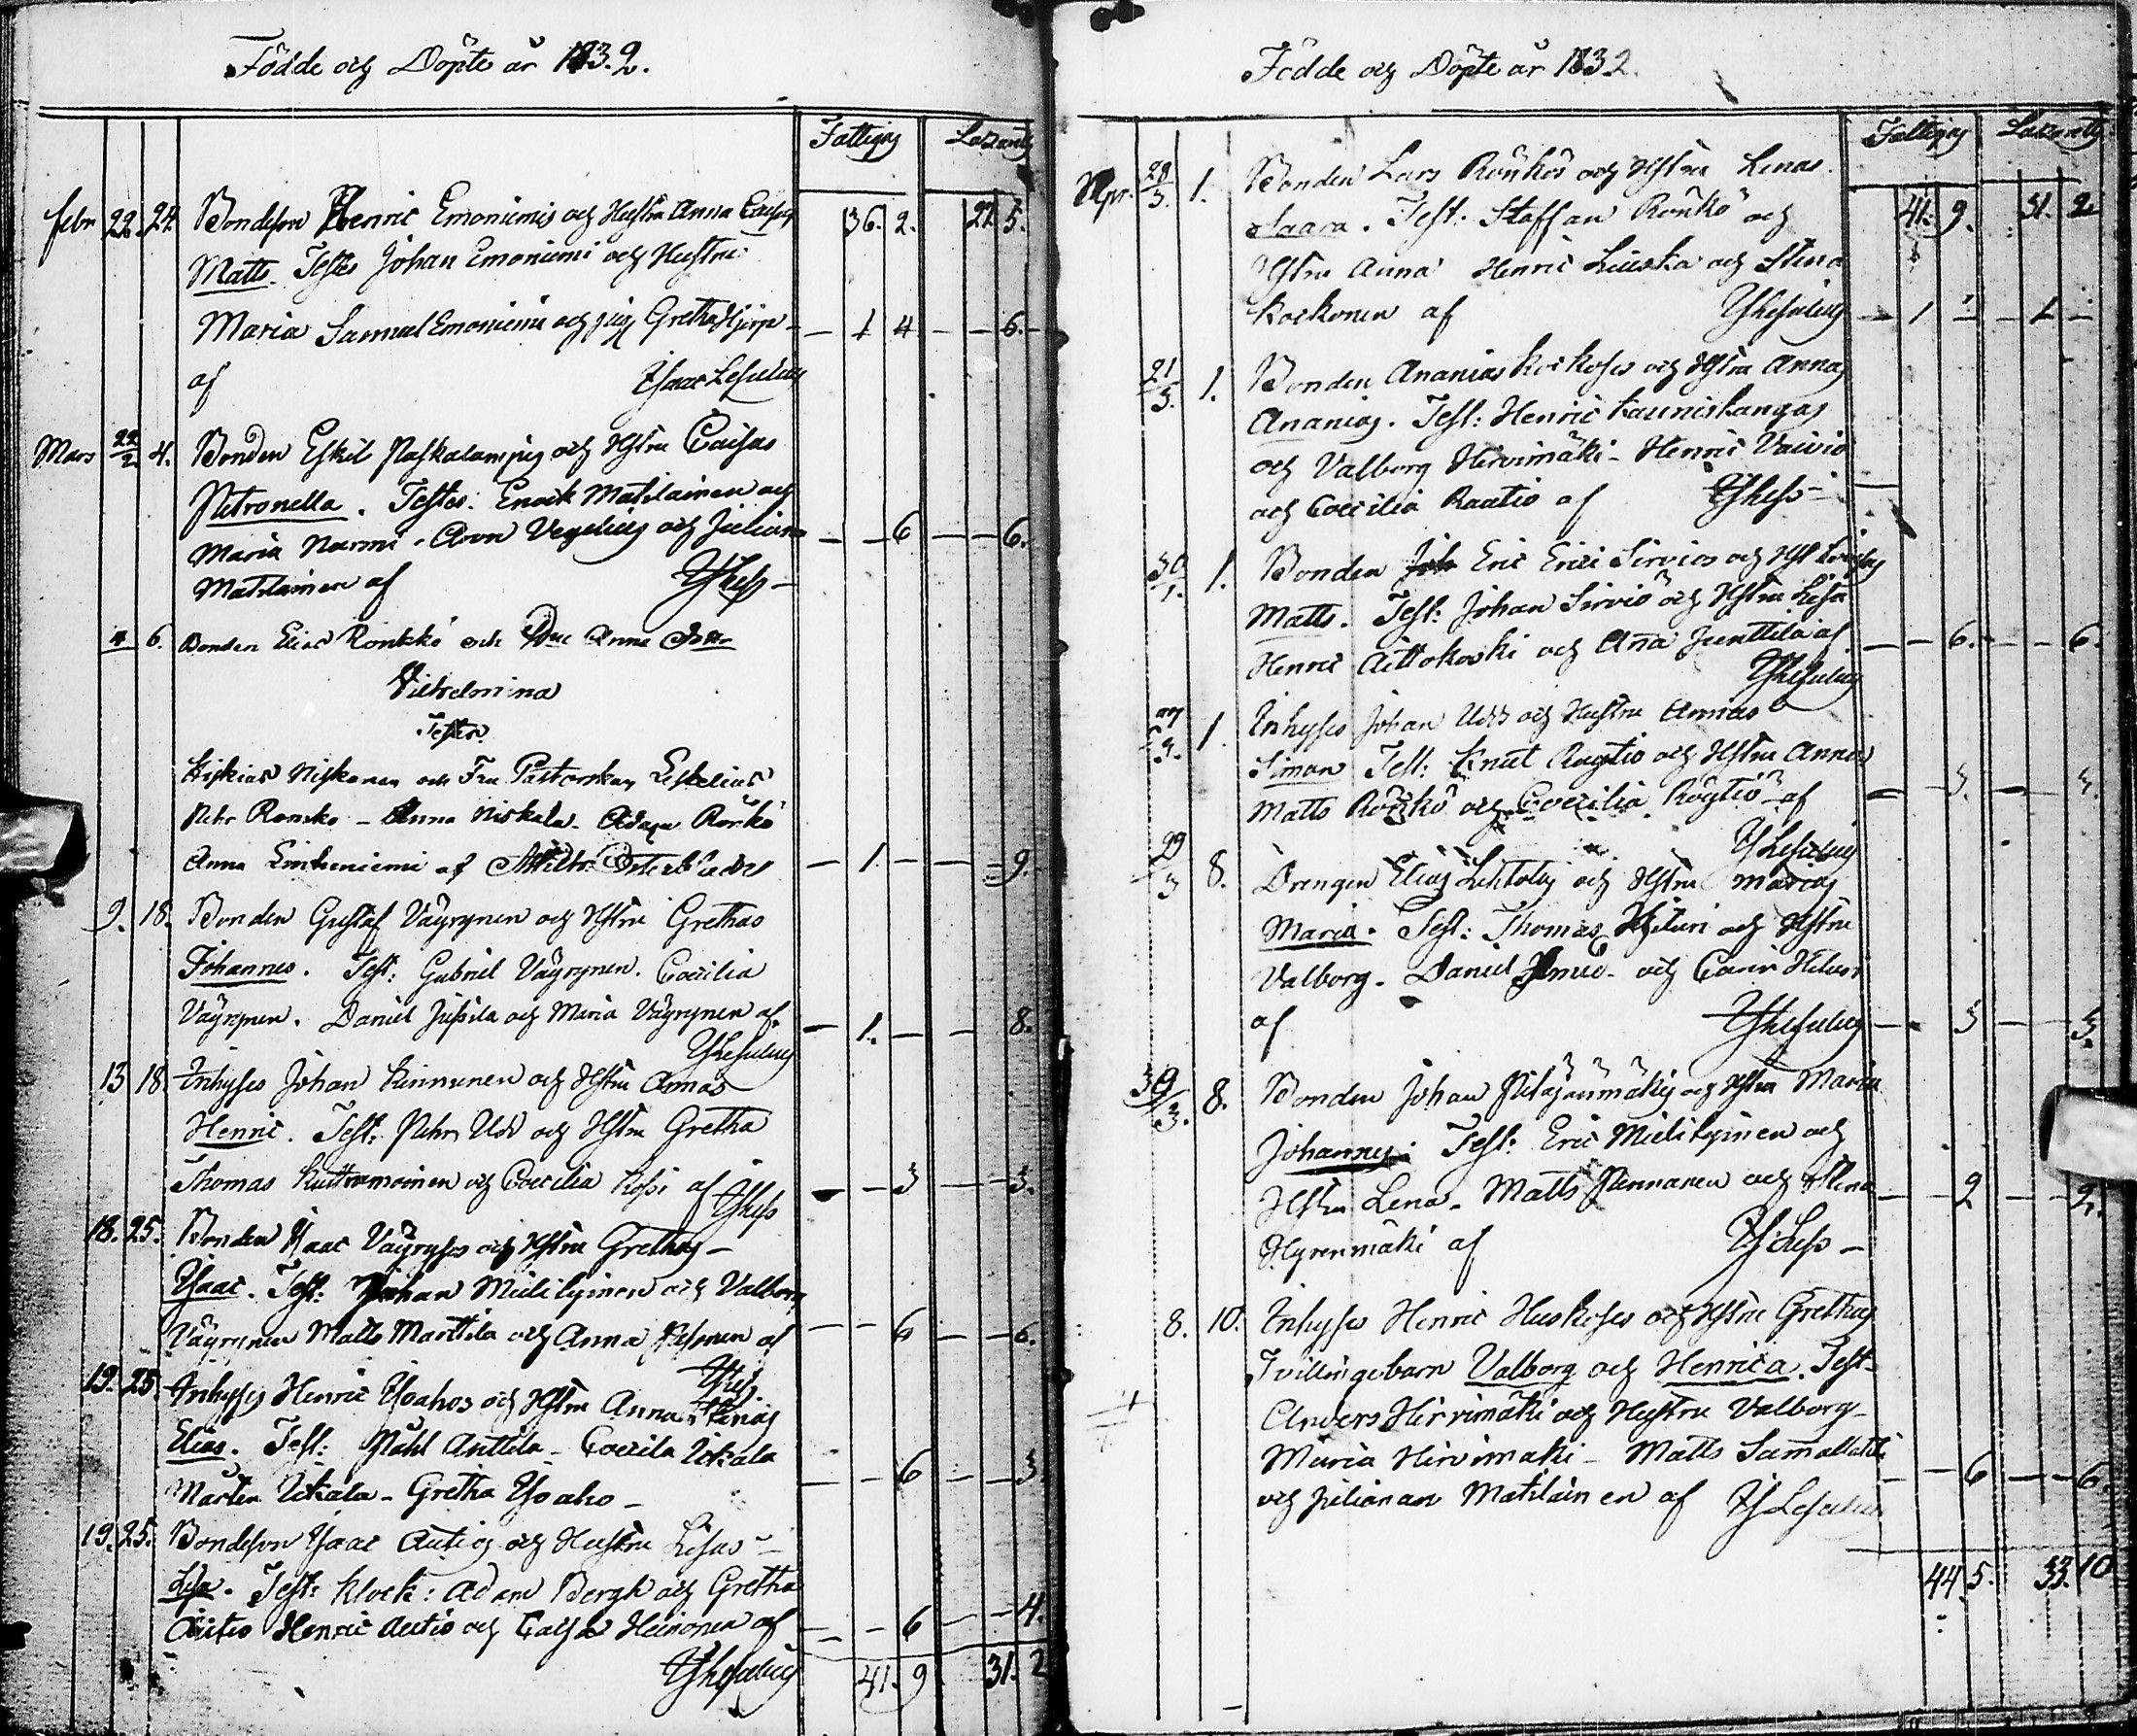 Födde och Döpte år 1832.
Fattigas Lazarets
febr 22. 24. Bondeson Henric Emoniemis och Hustru Anna Caisas 36. 2. 27. 5.
Matts. Testes Johan Emoniemi och Hustru
Maria Samuel Emoniemi och pig. Gretha Hjerp – – 1 4 – – 6. –
af Isaac Lesselius
Mars 22/2. 4. Bonden Eskil Paskalampis och Hstru Caisas
Petronella. Testes: Enock Matilainen och
Maria Nurmi. Aron Vegelius och Juliana – – 6 – – 6.
Matilainen af
4 6. Bonden Elias Ronkkö och Anna
Vilhelmina
Testes
Hiskias Niskanen och Fru Pastorskan Leskelius
Pehr Ronko – Anna Niskala. Adam Rönkö
Anna Emoniemi af – 1. – – 9.
9. 18. Bonden Gustaf Väyrynen och Hstru Grethas
Johannes. Test: Gabriel Väyrynen. Coecilia
Väyrynen. Daniel Jussila och Maria Väyrynen af – 1. – – 8.
YLesselius
13 18. Inhyses Johan Kinnunen och Hstru Annas
Henric. Test: Pehr Udd och Hstru Gretha
Thomas och Coecilia Kossi af YLess – – 3 – – 3.
18. 25. Bonden Isaac Väyryses och Hstru Grethas –
Isaac. Test: Johan Mielityinen och Valborg
Väyrynen Matts Marttila och Anna af – – 6 – – 6.
YLess.
19. 25. Inhyses Henric Ysoahos och Hstru Anna Stinas
Elias. Test: Påhl Anttila – Coecilia Uckala
Mårten Uckala – Gretha Ysoaho – – – 6 – – 3
19. 25. Bondeson Isaac Autios och Hustru Lisas –
Lisa. Test: Klock: Adam Bergh och Gretha
Autio Henric Autio och Caisa Heinonen af – – 6 – – 4.
YLesselius 41. 9 31. 2
Födde och Döpte år 1832.
Fattigas Lazarets
Apr. 28/3. 1. Bonden Lars Rönkös och Hstru Lenas
Saara. Test: Staffan Rönkö och 41. 9. 31. 2
Hstru Anna Henric Liuska och Stina
Kockonen af YLesselius – 1 – – 1 –
21/3. 1. Bonden Ananias Kockoses och Hstru Annas
Ananias. Test: Henric Kauniskangas
och Valborg Hirvimäki – Henric Vaivio
och Coecilia Rautio af YLess –
30/1. 1. Bonden Eric Erici Sirviös och Hst
Matts. Test: Johan Sirviö och Hstru Lisa
Henric Aittokoski och Ana Junttila af – – 6. – – 6.
YLesselius
27/3. 1. Inhyses Johan Udds och Hustru Annas
Simon Test: Knut Röytiö och Hstru Anna
Matts Rönkö och Coecilia Röytiö af – 3. – 3.
YLesselius
29/3 8. Drengen Elias Lehtolas och Hstru Marias
Maria. Test: Thomas och Hstru
Valborg. Daniel och Carin
af YLesselius – – 3 – – 3.
30/3. 8. Bonden Johan Pitäjänmäkis och Hstru Maria
Johannes. Test: Eric Mielityinen och
Hstru Lena. Matts Pennanen och Stina – – 2 – – 2.
Hyrenmäki af YLess –
8. 10. Inhyses Henric Huskoses och Hstru Grethas
Tvillingebarn Valborg och Henrica. Test –
Anders Hirvimäki och Hustru Valborg –
Maria Hirvimäki – Matts
och Julianan Matilainen af YLesselius – – 6 – – 6
44. 5. 33. 10